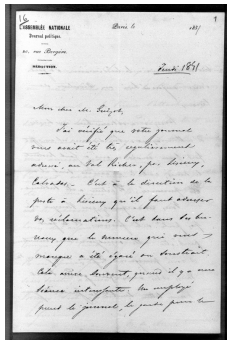 16
1
L'ASSEMBLÉE NATIONALE
Journal politique.
20, rue Bergère
RÉDACTION.
Paris le 185
Jeudi 1851
Mon cher M. Guizot,
J'ai vérifié que votre journal
vous avait été très régulièrement
adressé, au Val Richer, par Lisieux,
Calvados. C'est à la direction de la
poste à Lisieux qu'il faut adresser
vos réclamations. C'est dans ses bu-
reaux que le numéro qui vous
manque a été égaré ou soustrait.
Cela arrive souvent, quand il y a une
séance intéressante. Un employé
prend le journal, le garde pour le